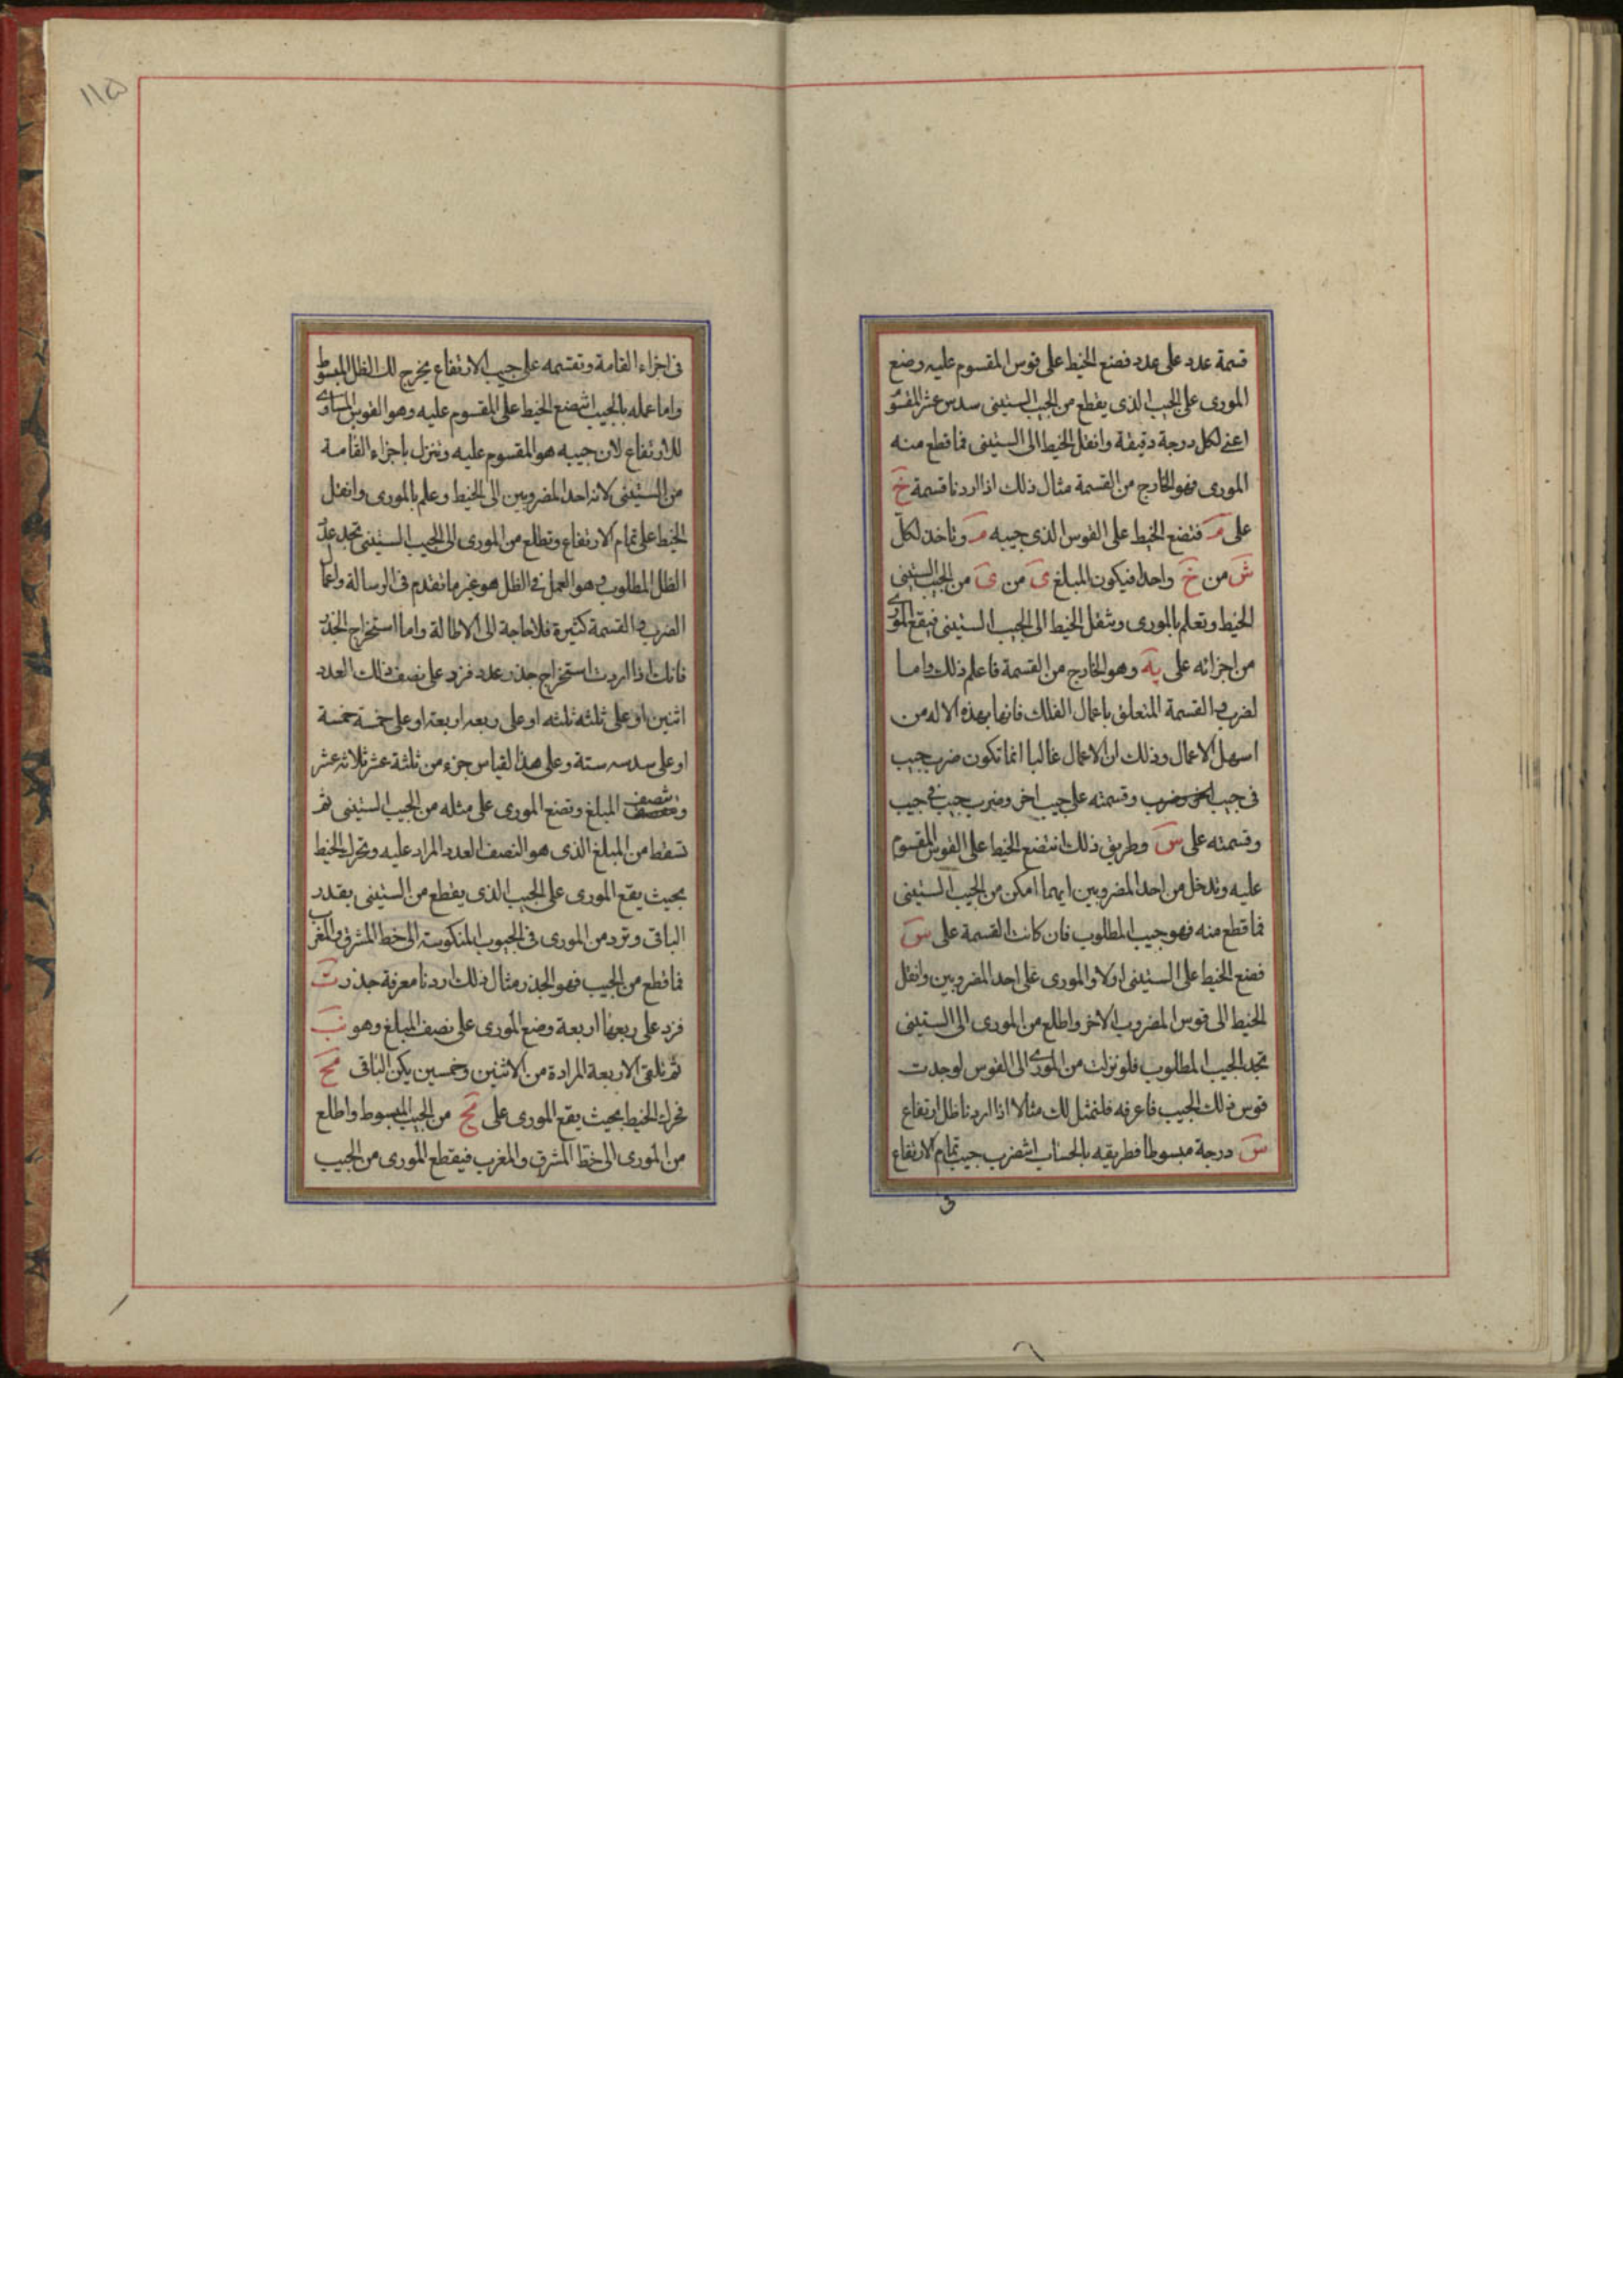 قسمة عدد على عدد فضع الخيط على قوس المقسوم عليه وضع
المورى على الجيب الذى يقطع من الجيب الستينى سدس عشر المقسوم
اعنى لكل درجة دقيقة وانقل الخيط الى الستينى فما قطع منه
المورى فهو الخارج من القسمة مثال ذلك اذا اردنا قسمة خ
على م فتضع الخيط على القوس الذى جيبه م وتاخذ لكل
س من خ واحدا فيكون المبلغ ى من ى من الجيب الستينى
الخيط وتعلم بالمورى وتنقل الخيط الى الجيب الستينى فيقع المورى
من اجزائه على يه وهو الخارج من القسمة فاعلم ذلك واما
لضرب والقسمة المتعلق باعمال الفلك فانها بهذه الاله من
اسهل الاعمال وذلك ان الاعمال غالبا انما تكون ضرب جيب
فى جيب وقسمته على جيب اخر وضرب جيب فى جيب
وقسمته على س وطريق ذلك ان تضع الخيط على القوس المقسوم
عليه وتدخل من احد المضروبين ايهما امكن من الجيب الستينى
فما قطع منه فهو جيب المطلوب فان كانت القسمة على س
فضع الخيط على الستينى اولا والمورى على احد المضروبين وانقل
الخيط الى قوس المضروب الاخر واطلع من المورى الى الستينى
تجد الجيب المطلوب فلو نزلت من المورى الى القوس لوجدت
قوس ذلك الجيب فاعرفه فلنمثل لك مثالا اذا اردنا ظل ارتفاع
س درجة مبسوطا فطريقه بالحساب ان تضرب جيب تمام الارتفاع
١١٥
فى اجزاء القامة وتقسمه على جيب الارتفاع يخرج لك الظل المبسوط
واما عمله بالجيب ان تضع الخيط على المقسوم عليه وهو القوس المساوى
للارتفاع لان جيبه هو المقسوم عليه وتنزل باجزاء القامة
من الستينى لانه احد المضروبين الى الخيط وعلم بالمورى وانقل
الخيط على تمام الارتفاع وتطلع من المورى الى الجيب الستينى تجد عدد
الظل المطلوب وهو العمل فى الظل هو غير ما تقدم فى الرسالة واعمال
الضرب والقسمة كثيرة فلا حاجة الى الاطالة واما استخراج الجذر
فانك اذا اردت استخراج جذر عدد فزد على نصف ذلك العدد
اثنين او على ثلثه ثلثه او على ربعه اربعة او على خمسه خمسة
او على سدسه ستة وعلى هذا القياس جزء من ثلثة عشر ثلاثه عشر
وتنصف المبلغ وتضع المورى على مثله من الجيب الستينى ثم
تسقط من المبلغ الذى هو النصف العدد المزاد عليه وتحرك الخيط
بحيث يقع المورى على الجيب الذى يقطع من الستينى بقدر
الباقى وترد من المورى فى الجيوب المنكوسة الى خط المشرق والمغرب
فما قطع من الجيب فهو الجذر مثال ذلك اردنا معرفة جذر ت
فزد على ربعها اربعة وضع المورى على نصف المبلغ وهو نب
ثم تلقى الاربعة المزادة من الاثنين وخمسين يكن الباقى مح
فحرك الخيط بحيث يقع المورى على مح من الجيب المبسوط واطلع
من المورى الى خط المشرق والمغرب فيقطع المورى من الجيب